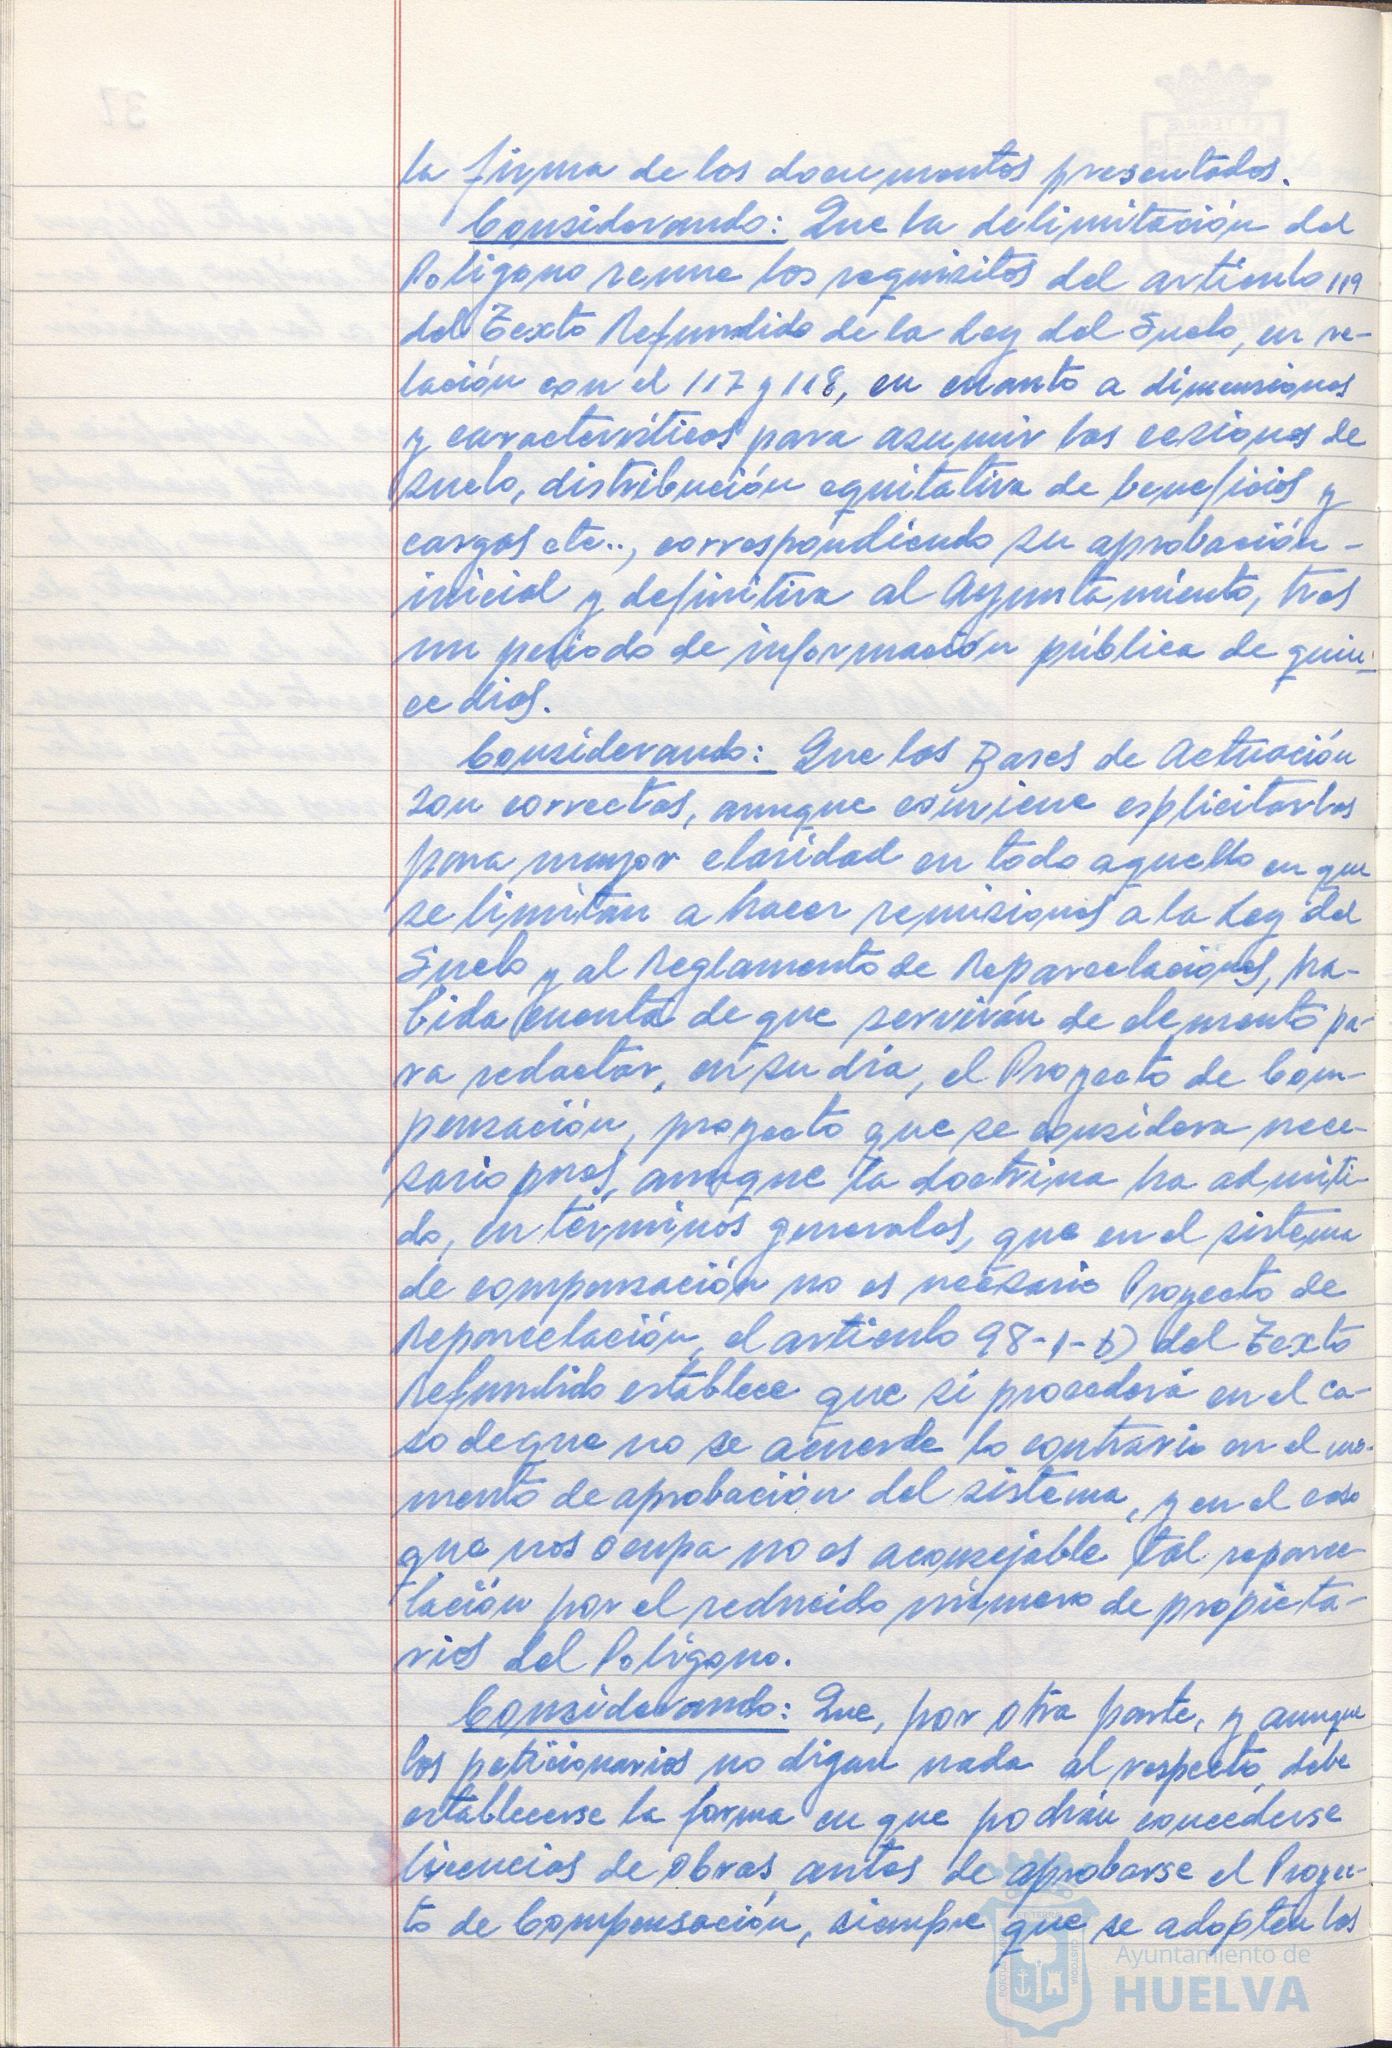 la firma de los documentos presentados.
Considerando: Que la delimitación del
Polígono reune los requisitos del artículo 119
del Texto Refundido de la Ley del Suelo, en re-
lación con el 117 y 118, en cuanto a dimensiones
y características para asumir las cesiones de
suelo, distribución equitativa de beneficios y
cargas etc.., correspondiendo su aprobación-
inicial y definitiva al Ayuntamiento, tras
un periodo de información pública de quin-
ce dias.
Considerando: Que las Bases de Actuación
son correctas, aunque conviene esplicitarlas
para mayor claridad en todo aquello en que
se limitan a hacer remisiones a la Ley del
Suelo y al Reglamento de Reparcelaciones, ha-
bida cuenta de que servirán de elemento pa-
ra redactar, en su día, el Proyecto de Com-
pensación, proyecto que se considera nece-
sario pues, aunque la doctrina ha admiti-
do, en términos generales, que en el sistema
de compensación no es necesario Proyecto de
Reparcelación, el artículo 98-1-b) del Texto
Refundido establece que si procederá en el ca-
so de que no se acuerde lo contrario en el mo-
mento de aprobación del sistema, y en el caso
que nos ocupa no es aconsejable tal reparce-
lación por el reducido número de propieta-
rios del Polígono.
Considerando: Que, por otra parte, y aunque
los peticionarios no digan nada al respecto, debe
establecerse la forma en que podrán concederse
licencias de obras, antes de aprobarse el Proyec-
to de Compensación, siempre que se adopten las
Ayuntamiento de
HUELVA